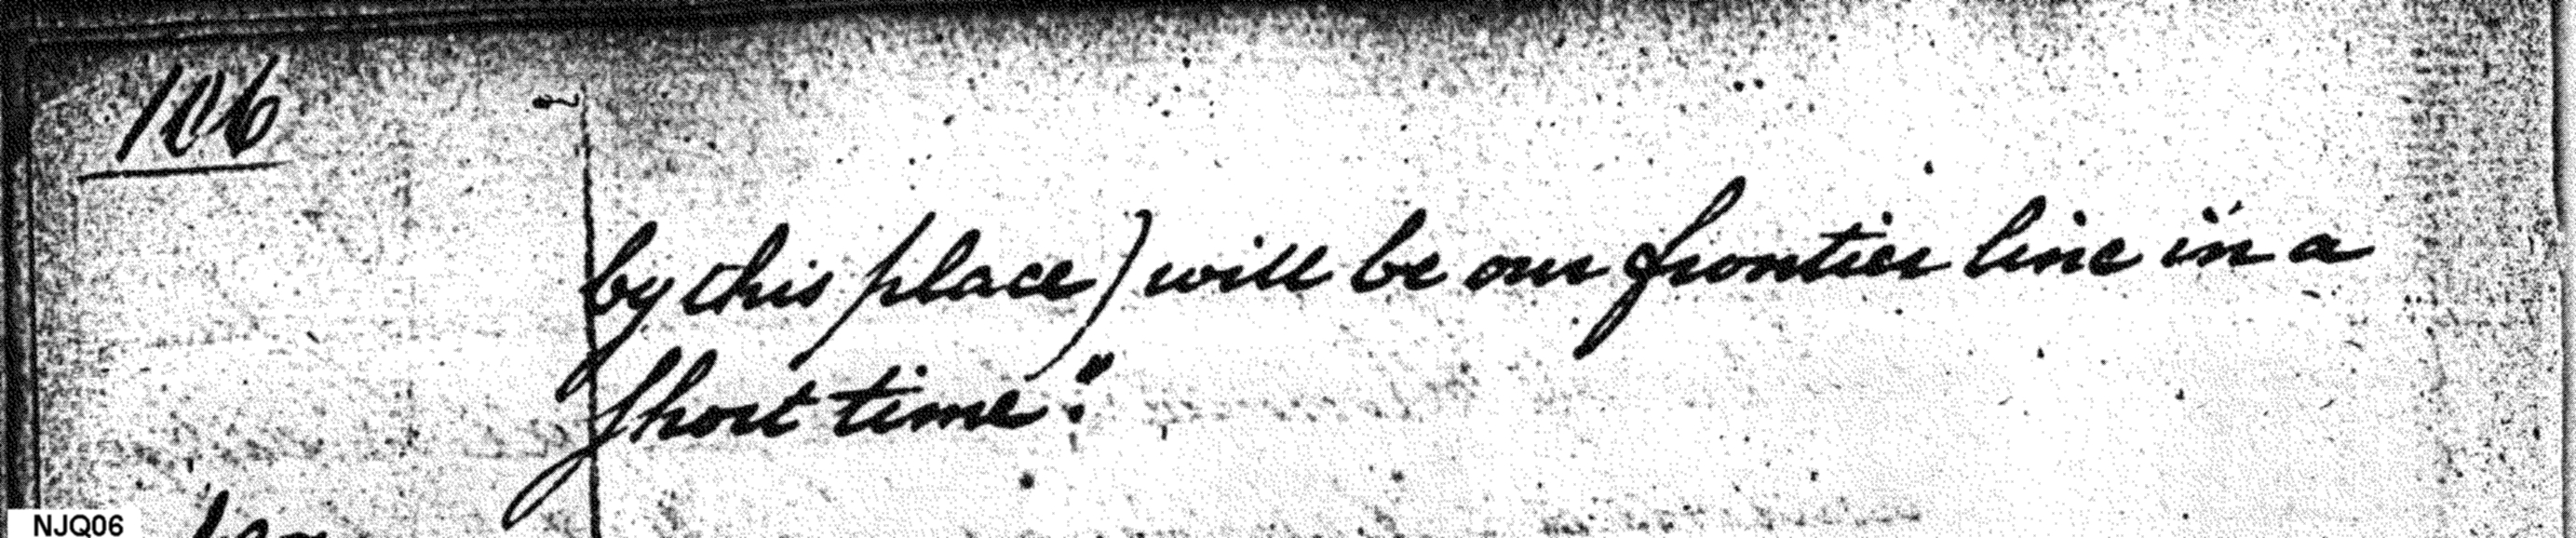 106
by this place) will be our frontier line in a
short time."
NJQ06